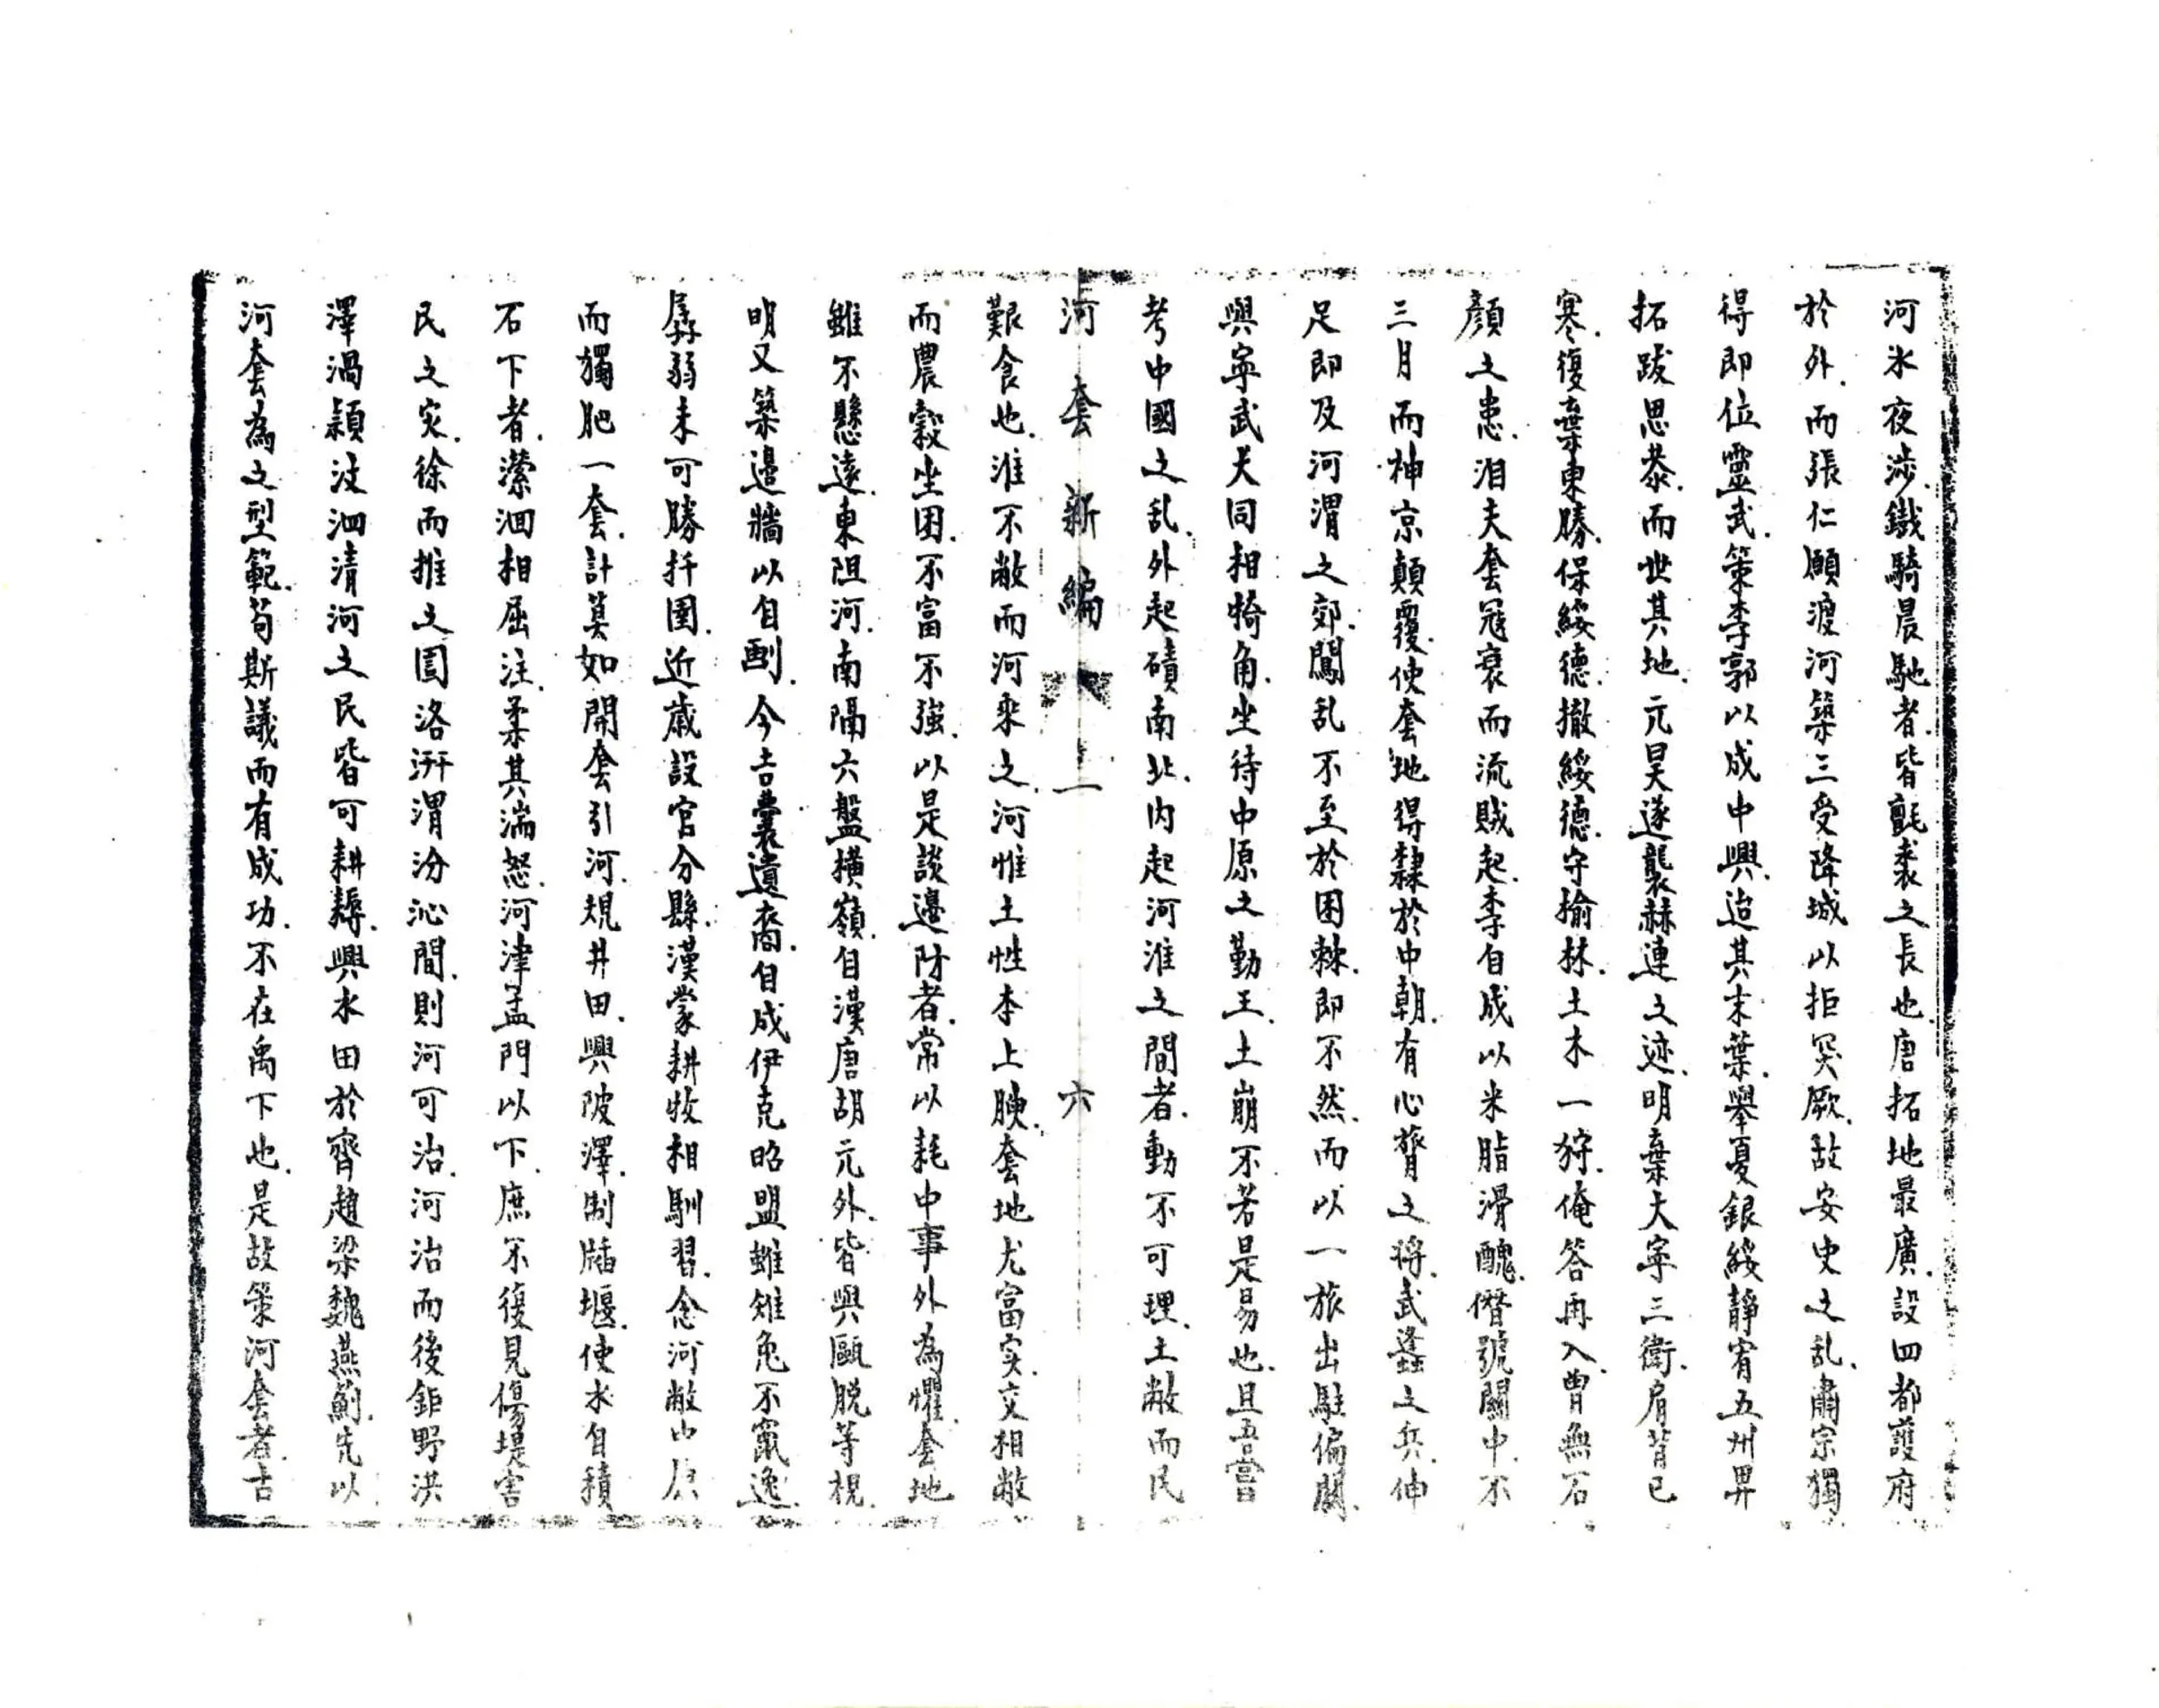 河氷夜涉.鐵騎晨馳者.皆氈裘之長也.唐拓地最廣.設四都護府
於外.而張仁愿渡河築三受降城以拒突厥.故安史之乱.肅宗獨
得即位靈武.策李郭以成中興.迨其末葉.舉夏銀綏靜宥五州畀
拓跋思恭.而世其地.元昊遂襲赫連之迹.明棄大寧三衛.肩背已
寒.復棄東勝.保綏德.撤綏德.守榆林.土木一狩.俺答再入.曹無石
顏之患.洎夫套冦衰而流賊起.李自成以米脂滑醜.僭號關中.不
三月而神京顛覆.使套地得隸於中朝.有心膂之將.武蠭之兵.伸
足即及河渭之郊.闖乱不至於困棘.即不然.而以一旅出駐偏關.
與寧武大同相犄角.坐待中原之勤王.土崩不若是易也.且吾嘗
考中國之乱.外起磧南北.内起河淮之間者.動不可理.土敝而民
河套新編 一 六
艱食也.淮不敝而河乘之.河惟土性本上腴.套地尤富实.交相敝
而農穀坐困.不富不強.以是談邊防者.常以耗中事外為懼.套地
雖不懸遠.東阻河.南隔六盤橫嶺.自漢唐胡元外.皆與甌脱等視.
明又築邉牆以自劃.今吉囊遺裔.自成伊克昭盟雖雉兔不竄逸.
孱弱未可勝扞圉.近歲設官分縣.漢蒙耕牧相馴習.念河敝山
而獨肥一套.計莫如開套引河.規井田.興陂澤.制牐堰.使水自積
石下者.瀠洄相屈注.柔其湍怒.河津孟門以下.庶不復見傷堤害
民之灾.徐而推之圁洛汧渭汾沁間.則河可治.河治而後鉅野洪
澤渦潁汶泗清河之民皆可耕耨.興水田於齊趙梁魏燕薊.先以
河套為之型範.苟斯議而有成功.不在禹下也.是故策河套者.古